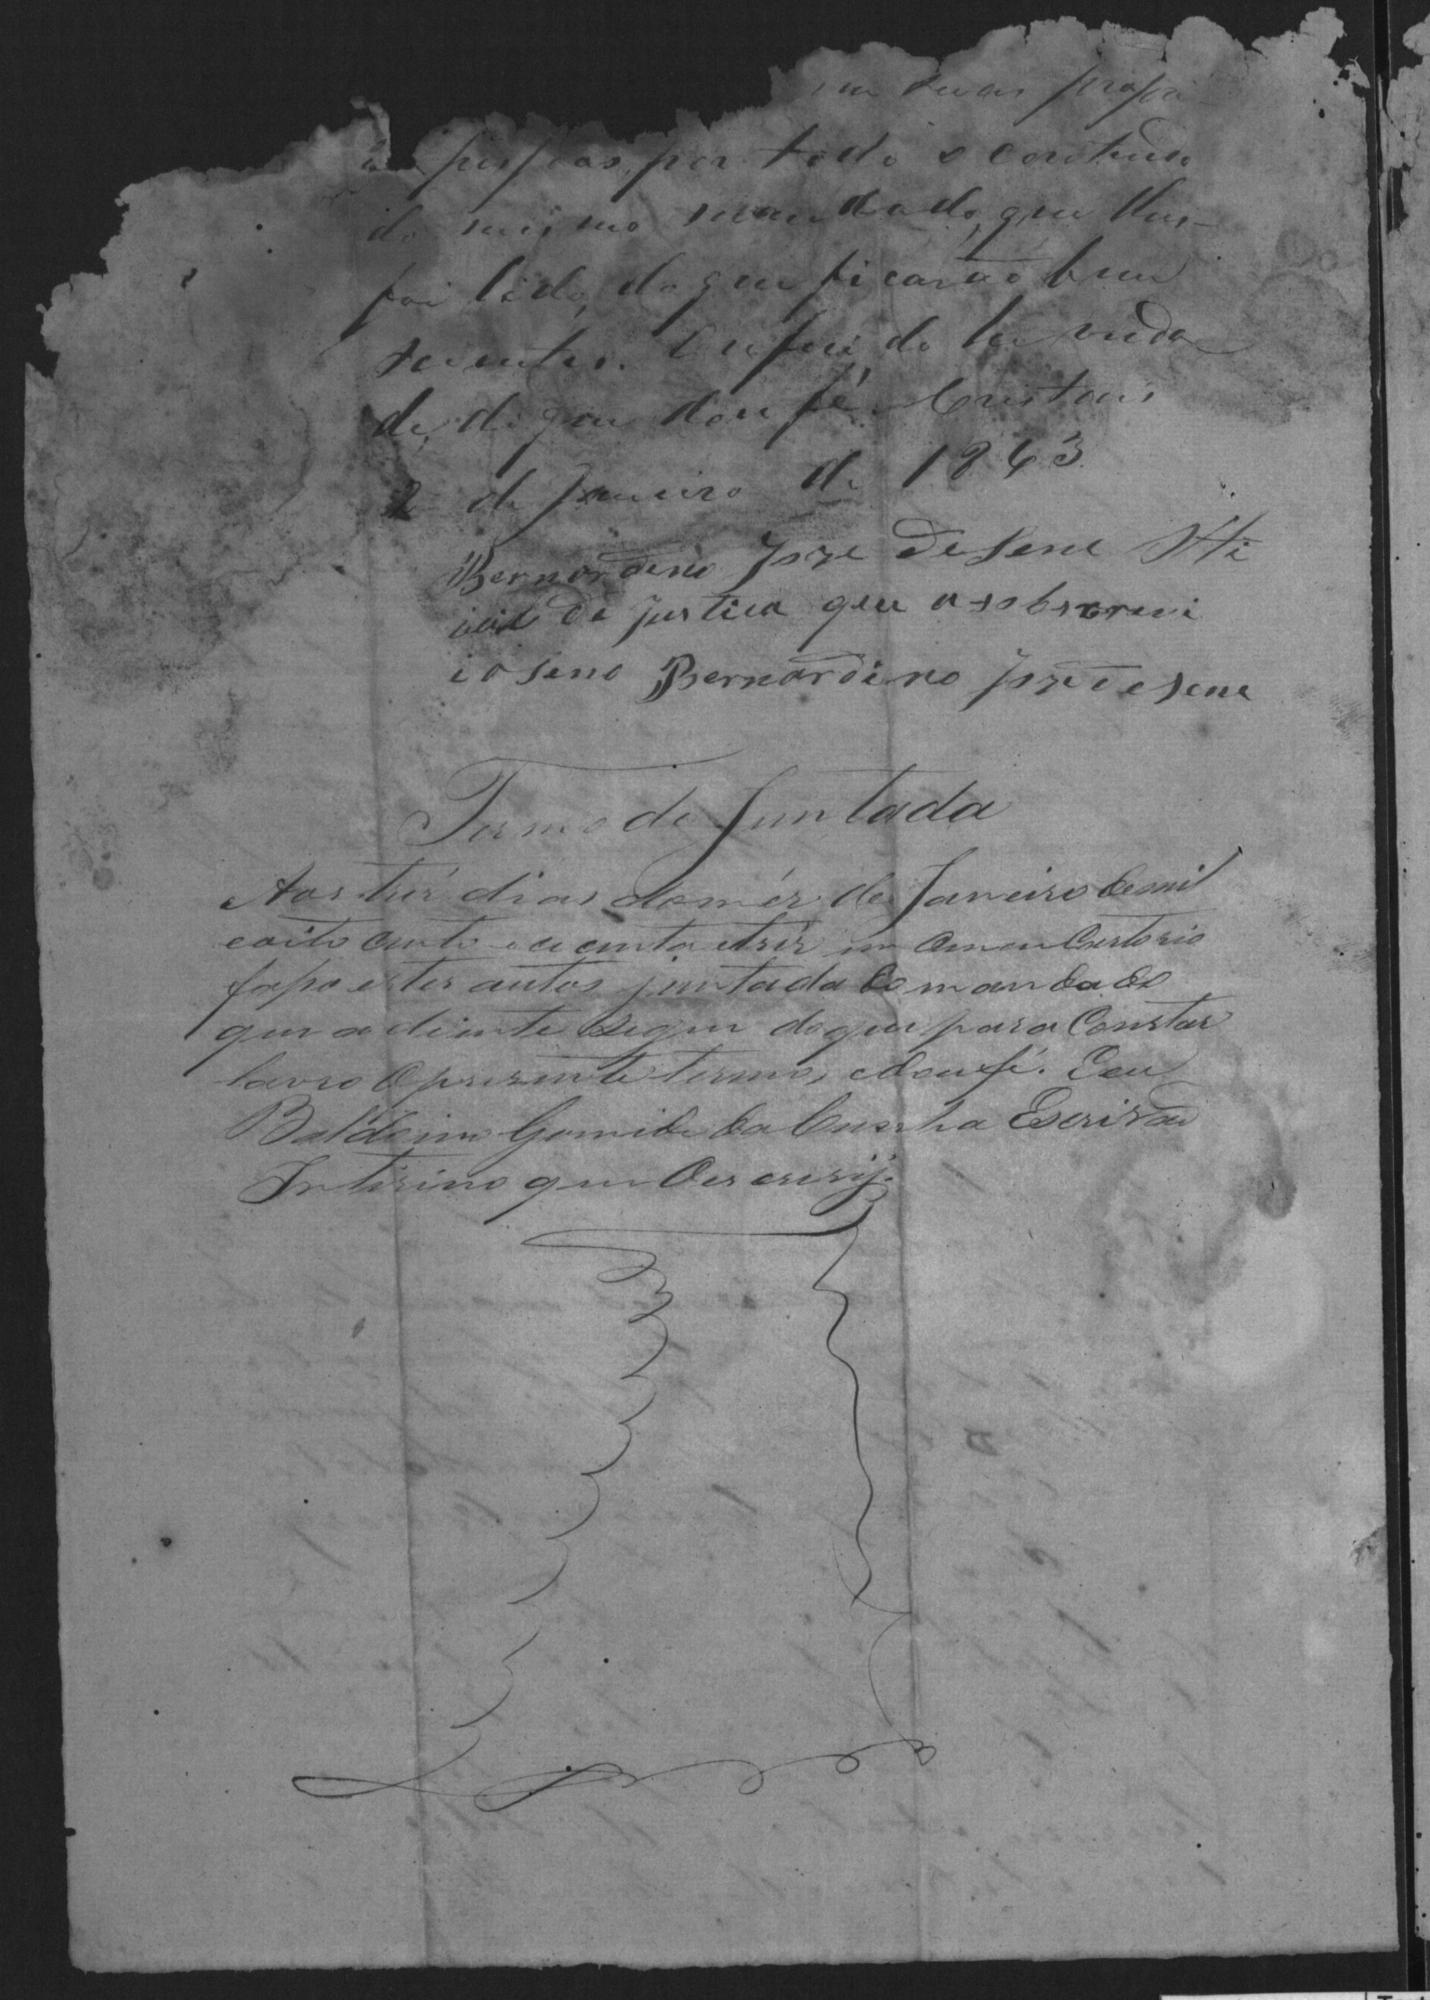 em suas propri
as pessoas, por todo o contendo
do mesmo mandado, que lhes
foi lido, do que ficarão bem
scientes. O referido he verda
de, do que dou fé. Cristais
2 de Janeiro de 1863
Bernardeno Joze de Sene Offi
cial de Justica que o sobscrevi
i o seno Bernardino Joze de Sene
Termo de Juntada
Aos trêz dias do mêz de Janeiro de mil
e oito cento e cecenta e trêz em o meu Cartorio
faço estes autos juntada do mandado
que adiente segue do que para Constar
lavro o prezente termo, e dou fé. Eeu
Baldoino Gomide da Cunha Escrivão
Interino que o escrevij.